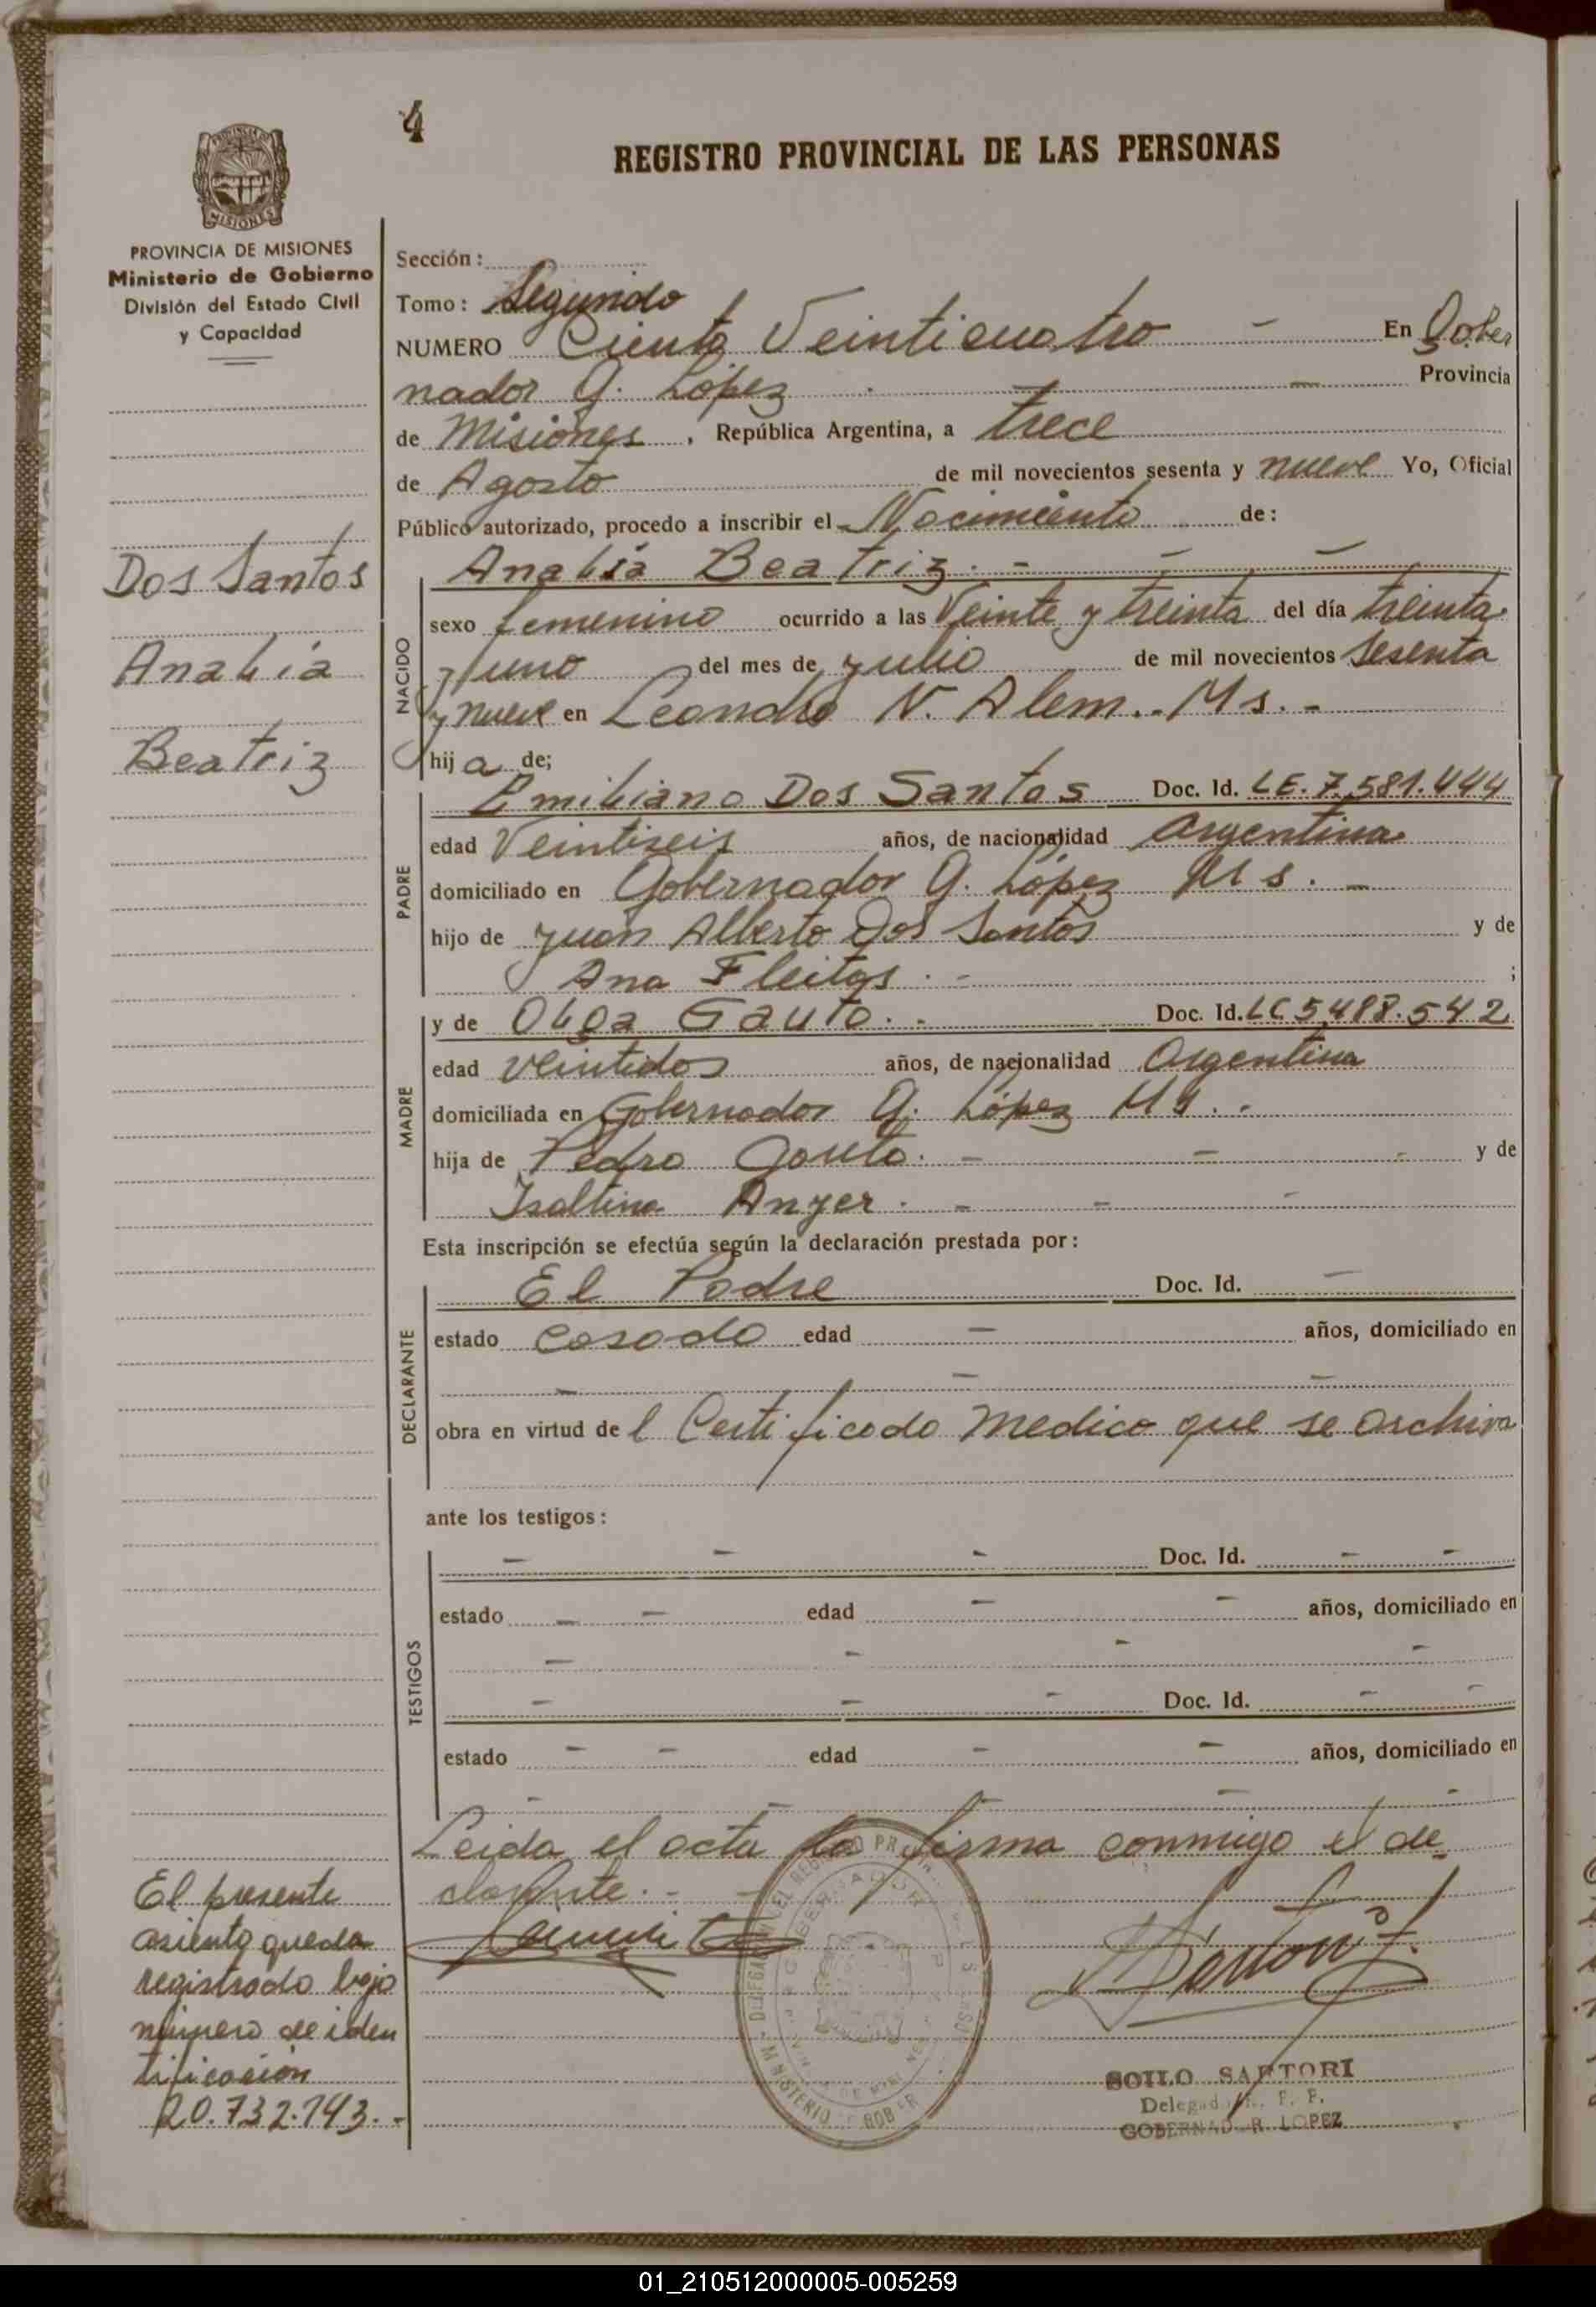 4
REGISTRO PROVINCIAL DE LAS PERSONAS
MISIONES
PROVINCIA DE MISIONES
Ministerio de Gobierno
División del Estado Civil
y Capacidad
Sección:
Tomo: Segundo
NUMERO Ciento Veinticuatro - En Gober
nador G. López - Provincia
de Misiones, República Argentina, a trece
de Agosto de mil novecientos sesenta y nueve Yo, Oficial
Público autorizado, procedo a inscribir el Nacimiento de:
Dos Santos
Analía
Beatriz
Analía Beatriz. - - -
NACIDO
sexo femenino ocurrido a las Veinte y treinta del día treinta
y uno del mes de julio de mil novecientos sesenta
y nueve en Leandro N. Alem.. Ms. -
hija de;
PADRE
Emiliano Dos Santos Doc. Id. LE. 7.581.444
edad Veintiseis años, de nacionalidad Argentina
domiciliado en Gobernador G. López Ms. -
hijo de Juan Alberto Dos Santos y de
Ana Fleitas. - ;
MADRE
y de Olga Gauto. - Doc. Id. LC 5488.542
edad veintidos años, de nacionalidad Argentina
domiciliada en Gobernador G. López Ms. -
hija de Pedro Gauto. - - - y de
Isaltina Anger. - - -
Esta inscripción se efectúa según la declaración prestada por:
DECLARANTE
El Padre Doc. Id. -
estado casado edad - años, domiciliado en
- - -
obra en virtud del Certificado Medico que se archiva
ante los testigos:
TESTIGOS
- - - Doc. Id. - -
estado - - edad - - años, domiciliado en
- - - -
- - - Doc. Id. - -
estado - - edad - - años, domiciliado en
- - - -
Leida el acta la firma conmigo el de-
clarante. - -
El presente
asiento queda
registrado bajo
número de iden
tificación
20.732.143.-
SOILO SARTORI
GOBERNADOR LOPEZ
01_210512000005-005259